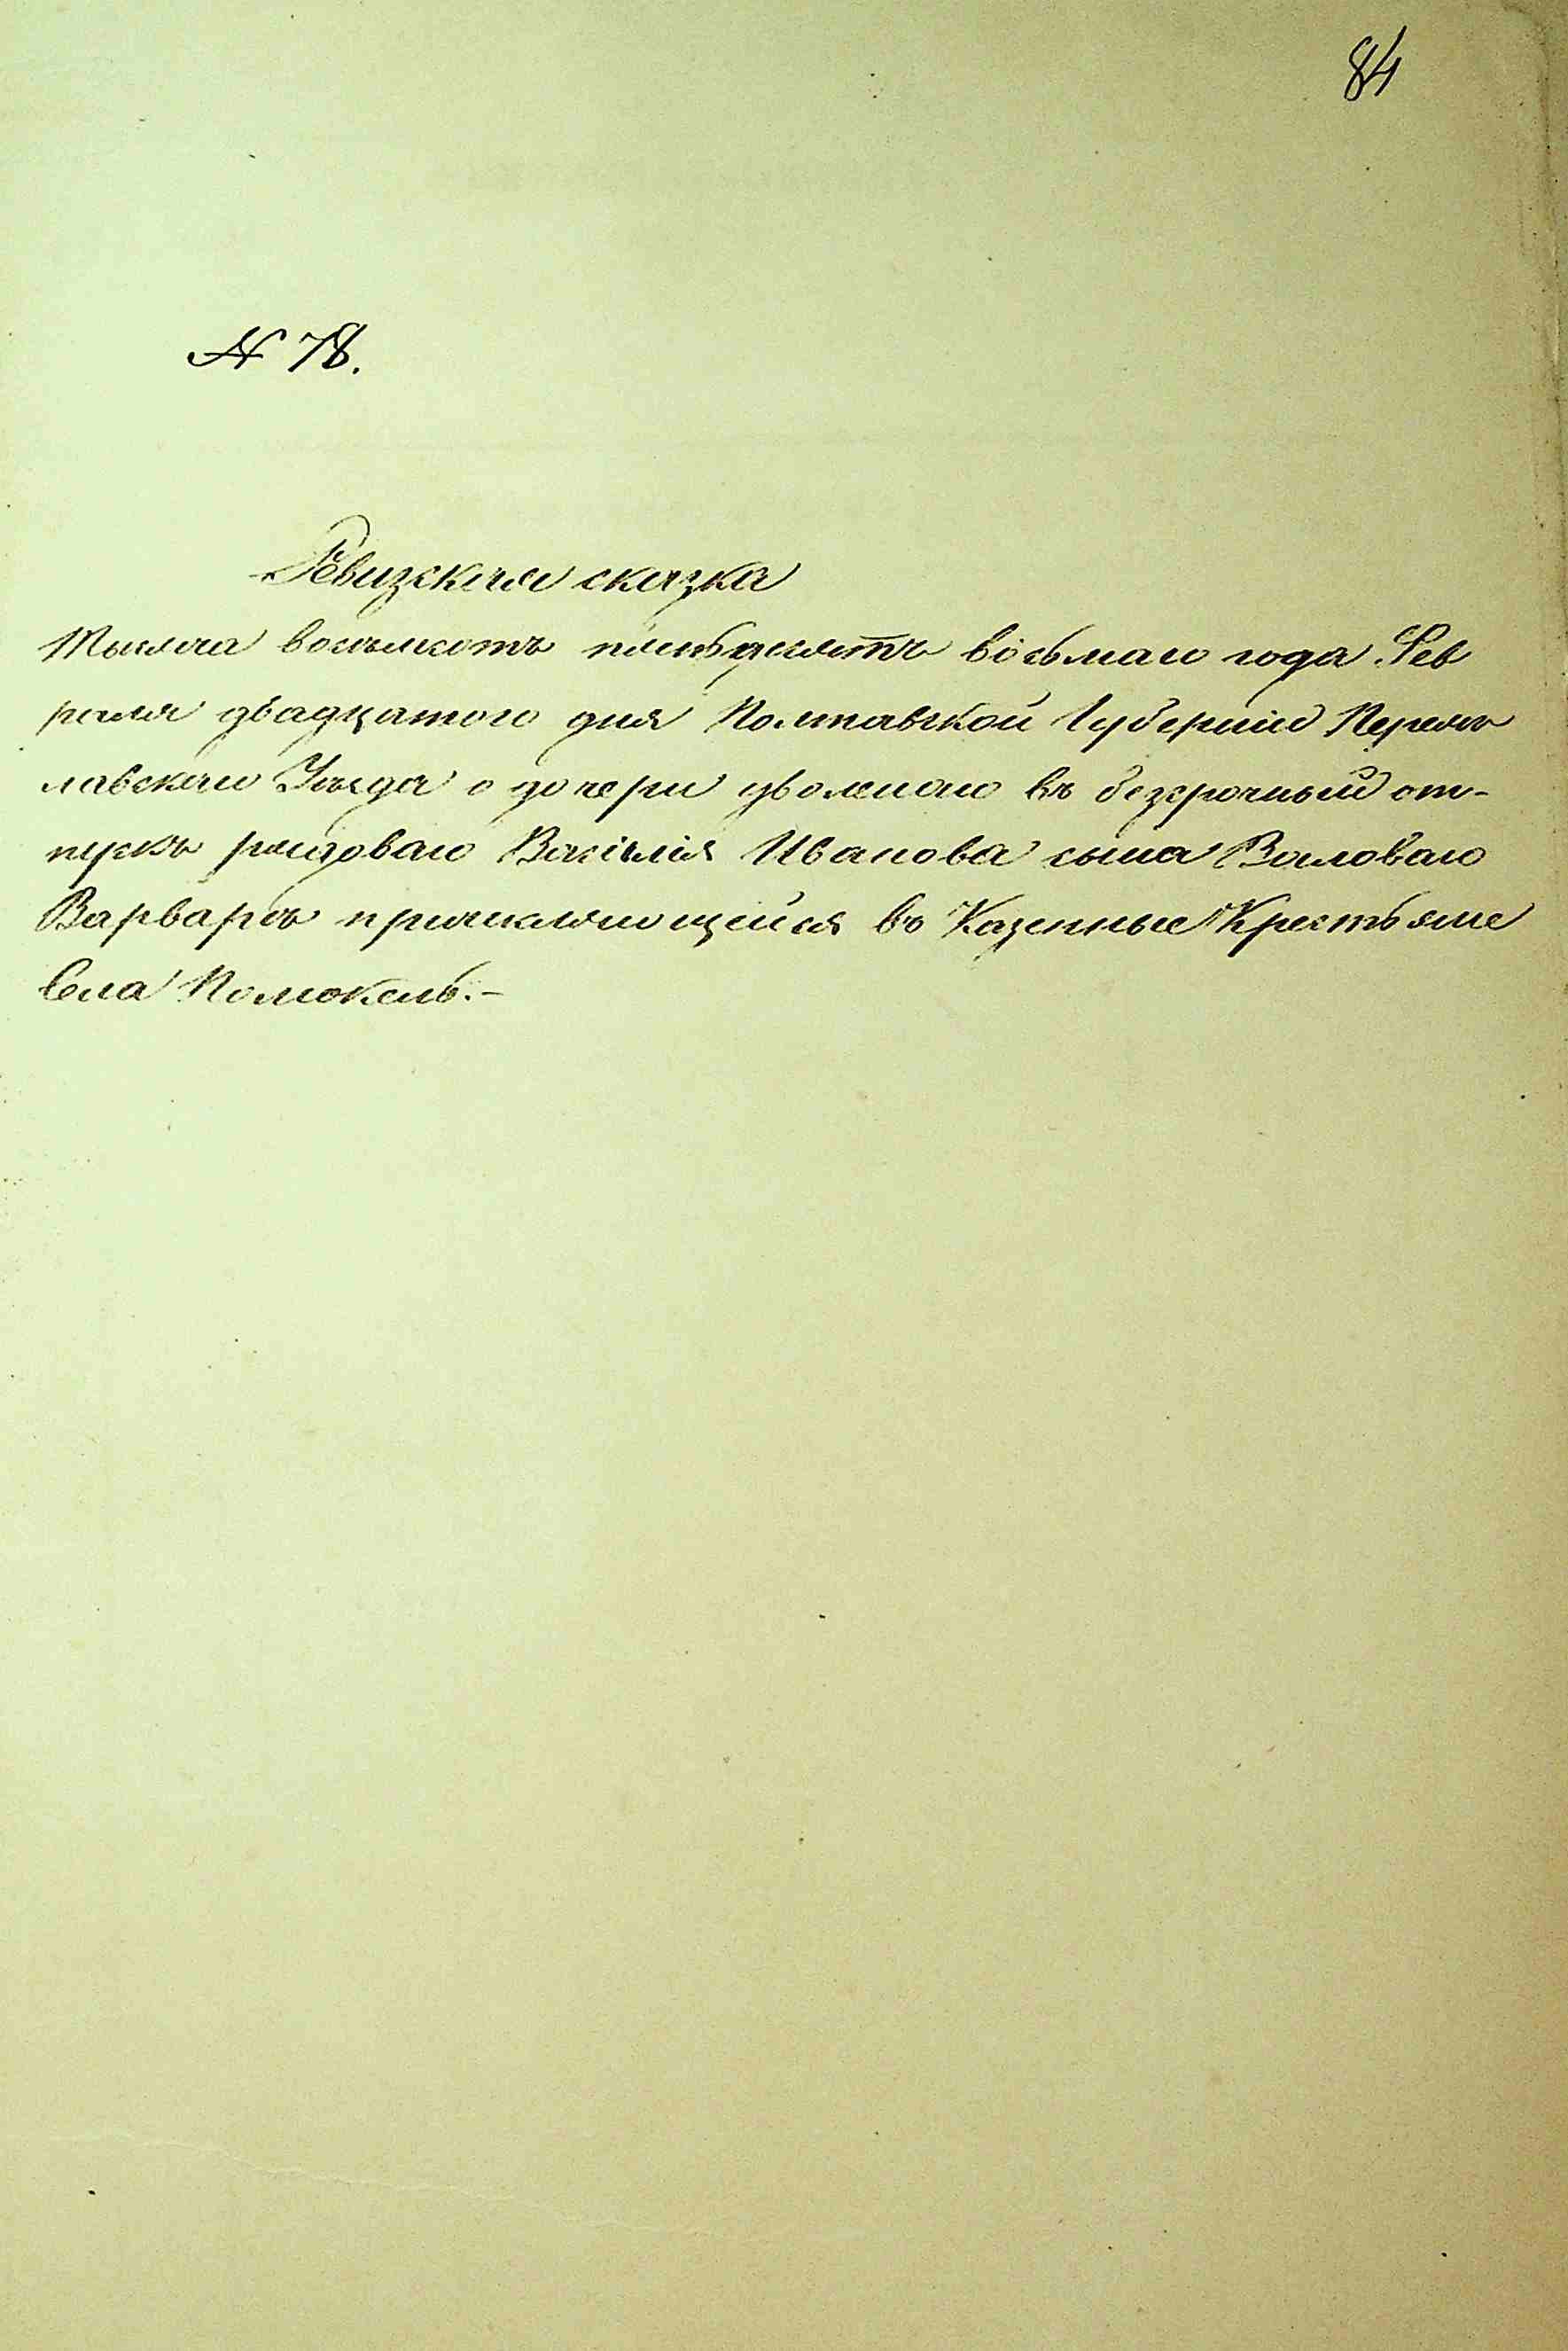 84
№ 78.
Ревизская сказка
Тысяча восемьсотъ пятьдесятъ восьмаго года Фев
раля двадцатого дня Полтавской Губерніи Переяс
лавскаго Уѣзда о дочери уволенаго въ безсрочный от-
пускъ рядоваго Василія Иванова сынаВаловаго
Варварѣ причисляющейся въ Казенные Крестьяне
Села Помоклей.-